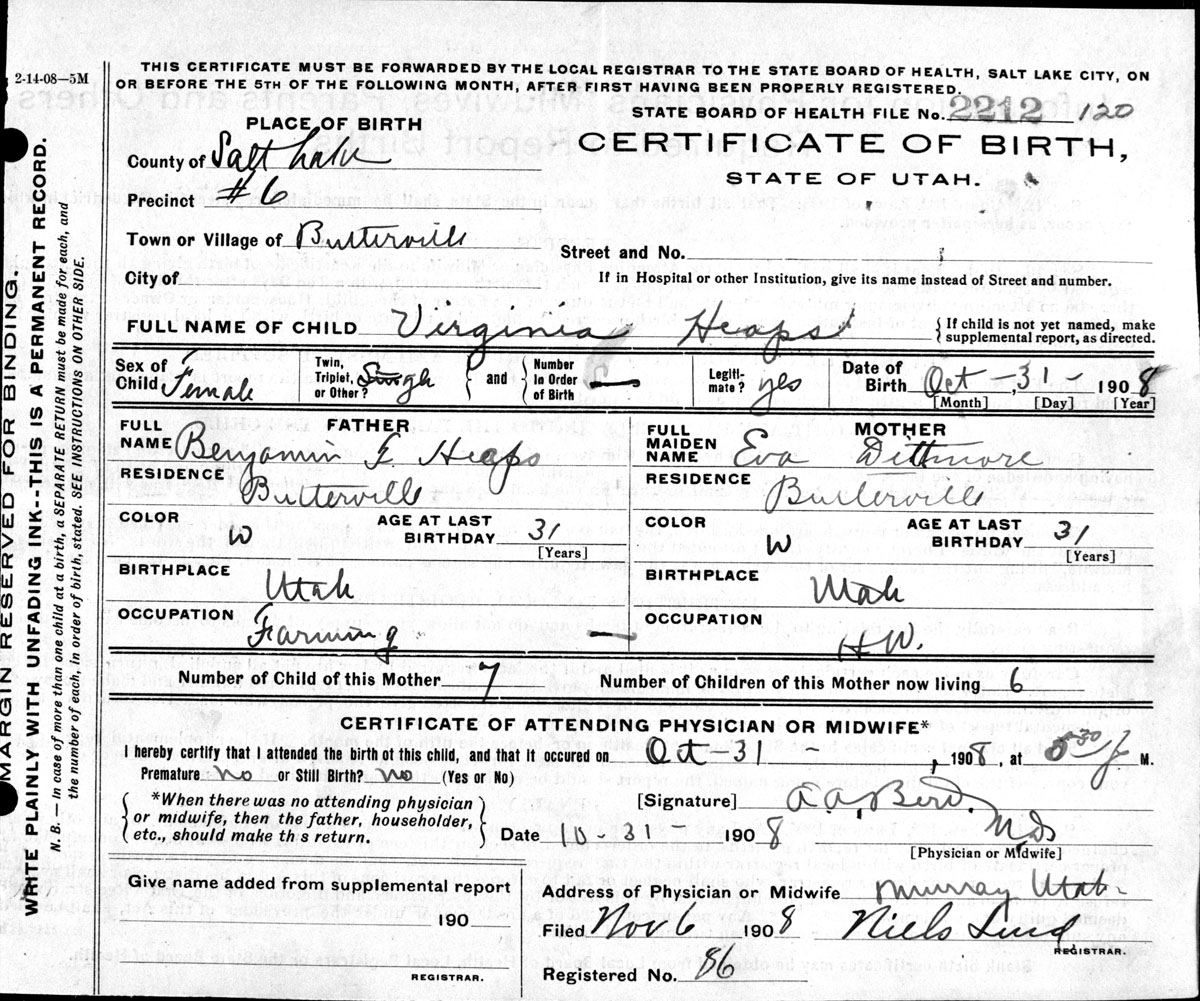 2-14-08—5M
THIS CERTIFICATE MUST BE FORWARDED BY THE LOCAL REGISTRAR TO THE STATE BOARD OF HEALTH, SALT LAKE CITY, ON
OR BEFORE THE 5TH OF THE FOLLOWING MONTH, AFTER FIRST HAVING BEEN PROPERLY REGISTERED.
STATE BOARD OF HEALTH FILE No. 2212 120
PLACE OF BIRTH
CERTIFICATE OF BIRTH,
STATE OF UTAH.
County of Salt Lake
Precinct #6
Town or Village of Butterville
Street and No.
City of
If in Hospital or other Institution, give its name instead of Street and number.
FULL NAME OF CHILD Virginia Heaps
{If child is not yet named, make
supplemental report, as directed.
Sex of Child Female
Twin, Triplet, or Other? Single
and
Number In Order of Birth —
Legiti-mate? yes
Date of Birth Oct - 31 - 1908
[Month] [Day] [Year]
FATHER
FULL NAME Benjamin F. Heaps
RESIDENCE Butterville
COLOR W
AGE AT LAST BIRTHDAY 31
[Years]
BIRTHPLACE Utah
OCCUPATION Farming
MOTHER
FULL MAIDEN NAME Eva Dittmore
RESIDENCE Butterville
COLOR W
AGE AT LAST BIRTHDAY 31
[Years]
BIRTHPLACE Utah
OCCUPATION H.W.
Number of Child of this Mother 7
Number of Children of this Mother now living 6
CERTIFICATE OF ATTENDING PHYSICIAN OR MIDWIFE*
I hereby certify that I attended the birth of this child, and that it occured on Oct 31, 1908, at 5 30 M.
Premature no or Still Birth? no (Yes or No)
*When there was no attending physician
or midwife, then the father, householder,
etc., should make this return.
[Signature] A A Bird. M.D.
Date 10 - 31 - 1908
[Physician or Midwife]
Give name added from supplemental report
190
REGISTRAR.
Address of Physician or Midwife Murray Utah-
Filed Nov 6 1908 Niels Lind
REGISTRAR.
Registered No. 86
MARGIN RESERVED FOR BINDING.
WRITE PLAINLY WITH UNFADING INK--THIS IS A PERMANENT RECORD.
N. B.—In case of more than one child at a birth, a SEPARATE RETURN must be made for each, and
the number of each, in order of birth, stated. SEE INSTRUCTIONS ON OTHER SIDE.